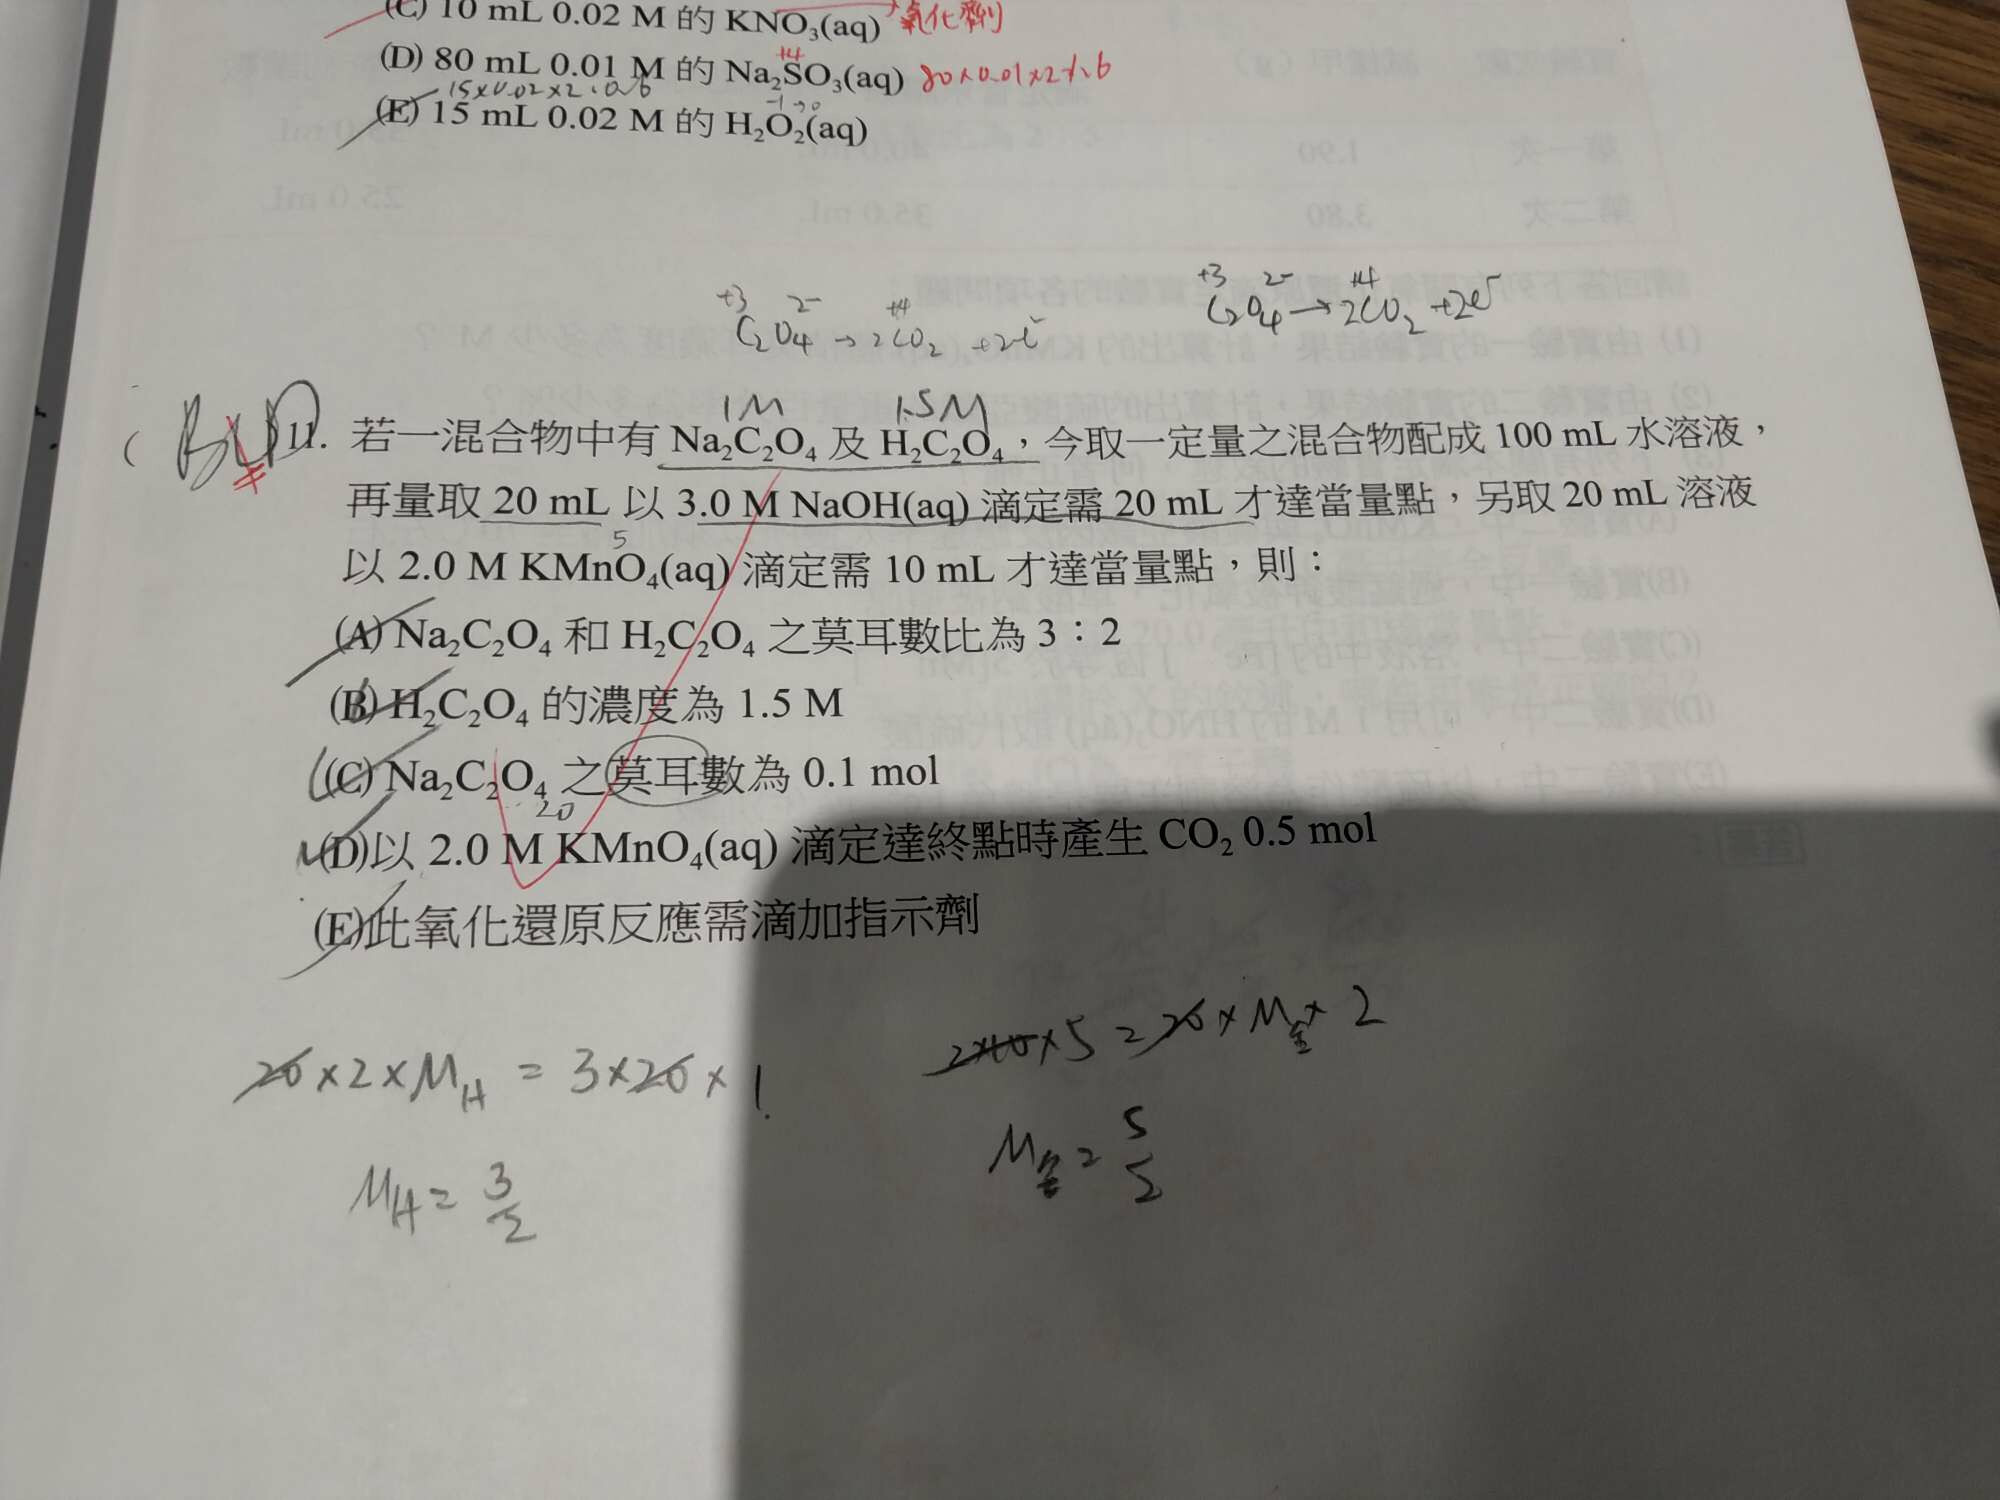 (C) 10 mL 0.02 M 的 KNO₃(aq) 氧化劑
(D) 80 mL 0.01 M 的 Na₂SO₃(aq) 80×0.01×2
+4
15×0.02×2
-1→0
(E) 15 mL 0.02 M 的 H₂O₂(aq)
+3 2- +4
C₂O₄→2CO₂+2e⁻
+3 2- +4
C₂O₄→2CO₂+2e⁻
1M 1.5M
11. 若一混合物中有 Na₂C₂O₄ 及 H₂C₂O₄,今取一定量之混合物配成 100 mL 水溶液,
再量取 20 mL 以 3.0 M NaOH(aq) 滴定需 20 mL 才達當量點,另取 20 mL 溶液
5
以 2.0 M KMnO₄(aq) 滴定需 10 mL 才達當量點,則:
(A) Na₂C₂O₄ 和 H₂C₂O₄ 之莫耳數比為 3:2
(B) H₂C₂O₄ 的濃度為 1.5 M
(C) Na₂C₂O₄ 之莫耳數為 0.1 mol
20
(D)以 2.0 M KMnO₄(aq) 滴定達終點時產生 CO₂ 0.5 mol
(E)此氧化還原反應需滴加指示劑
20×2×M_H = 3×20×1
M_H = 3/2
2×10×5=20×M全×2
M全=5/2